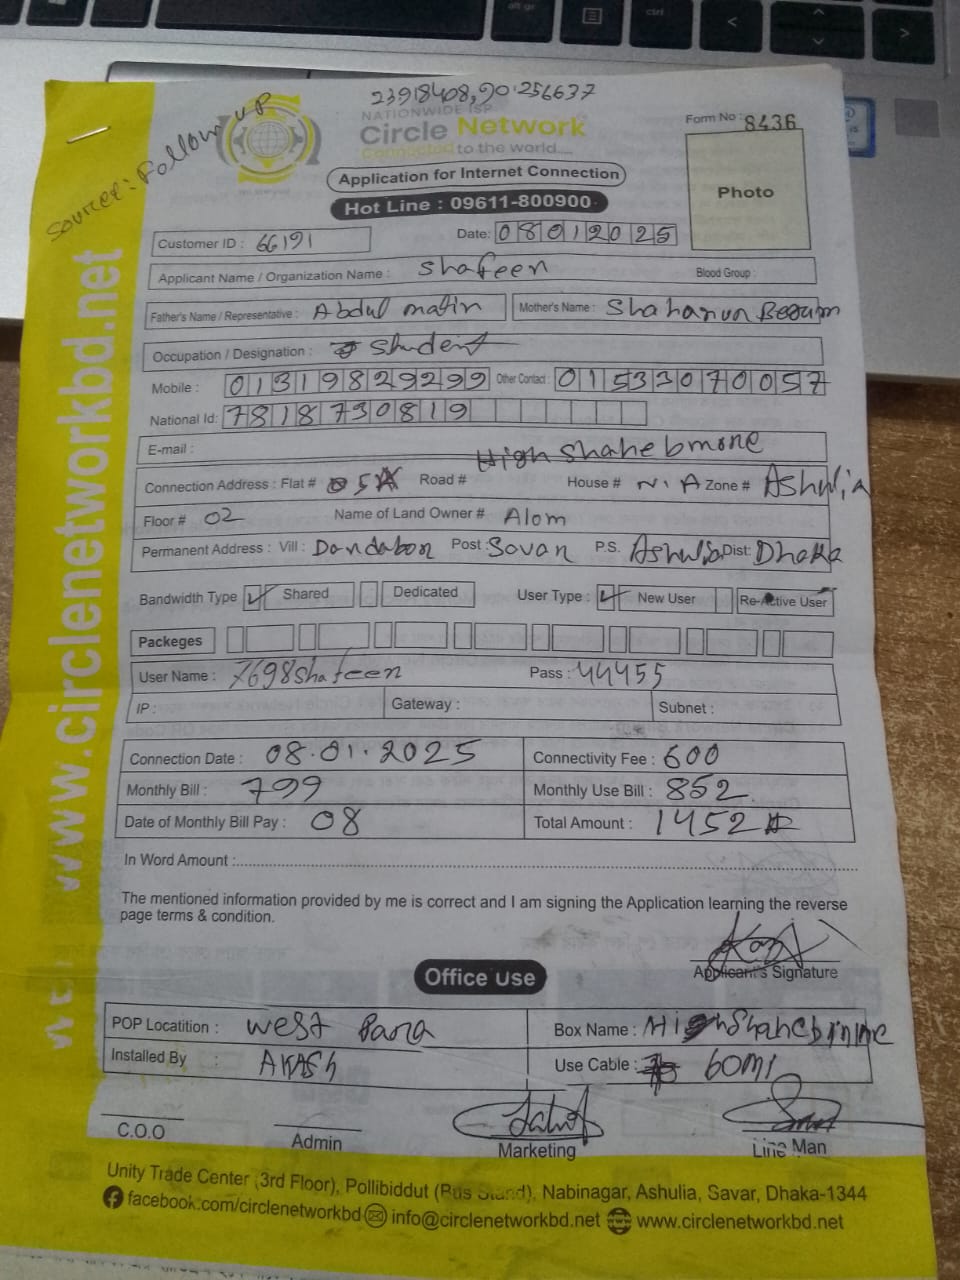 23918408,90.256637
Source: Follow up
NATIONWIDE ISP
Circle Network
Connected to the world....
Form No : 8436
Application for Internet Connection
Photo
Hot Line : 09611-800900
Customer ID : 66191
Date: 08012025
Applicant Name / Organization Name : Shafeen
Blood Group :
Father's Name / Representative : Abdul matin
Mother's Name : Shahanua Begum
Occupation / Designation : Student
Mobile : 01319829299
Other Contact : 01533070057
National Id: 7818730819
E-mail :
High Shahebmone
Connection Address : Flat # 5A Road # House # N.A Zone # Ashulia
Floor # 02 Name of Land Owner # Alom
Permanent Address : Vill : Dandabor Post : Savar P.S. Ashulia Dist: Dhaka
Bandwidth Type Shared Dedicated User Type : New User Re-Active User
Packeges
User Name : 7698shafeen Pass : 44455
IP : Gateway : Subnet :
Connection Date : 08.01.2025 Connectivity Fee : 600
Monthly Bill : 799 Monthly Use Bill : 852
Date of Monthly Bill Pay : 08 Total Amount : 1452
In Word Amount :
The mentioned information provided by me is correct and I am signing the Application learning the reverse
page terms & condition.
Applicant's Signature
Office Use
POP Locatition : West Para Box Name :
Installed By : AKASh Use Cable : 60mi
C.O.O
Admin
Marketing
Line Man
Unity Trade Center (3rd Floor), Pollibiddut (Bus Stand), Nabinagar, Ashulia, Savar, Dhaka-1344
facebook.com/circlenetworkbd info@circlenetworkbd.net www.circlenetworkbd.net
www.circlenetworkbd.net
alt gr
ctrl